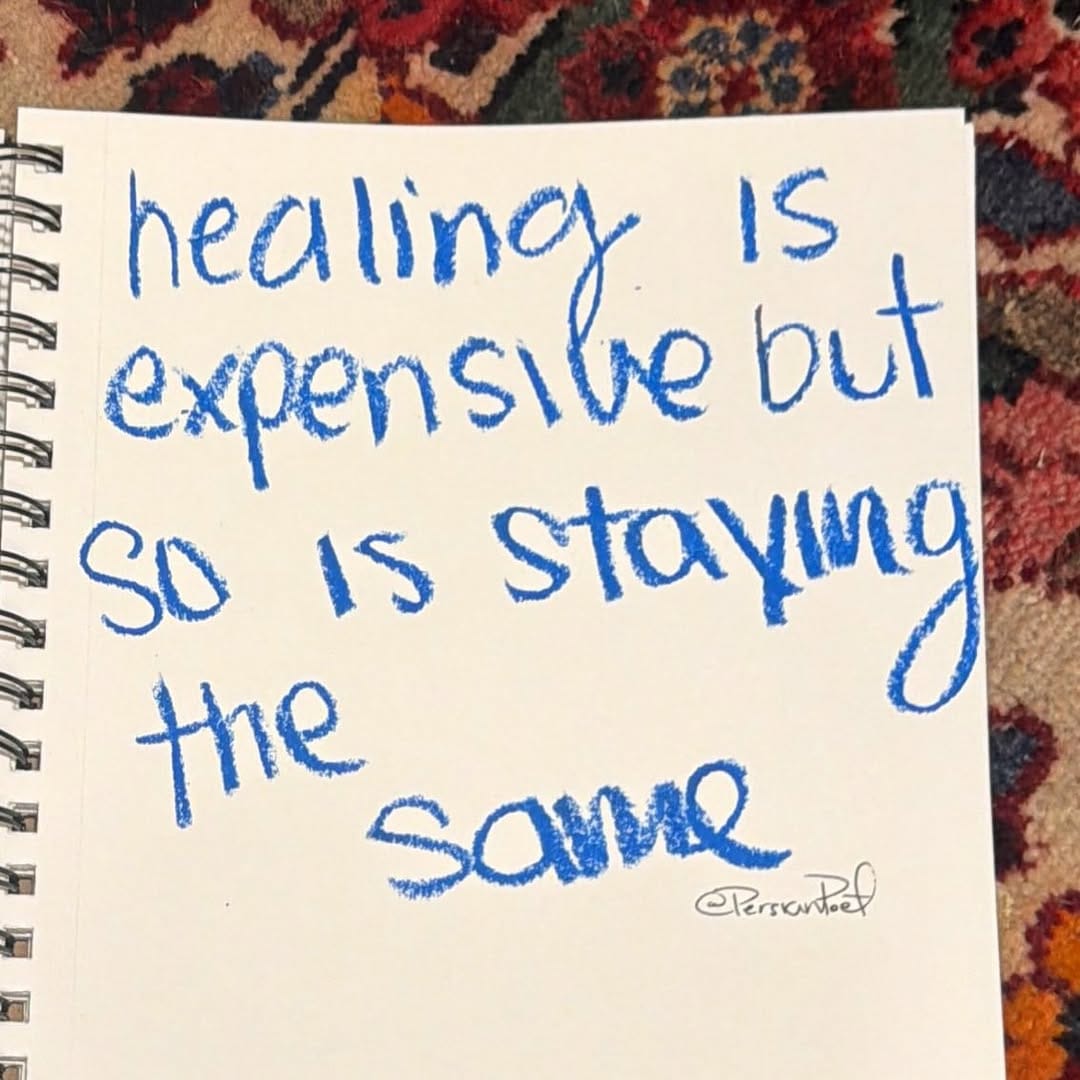 healing is
expensive but
so is staying
the
same
@PersianPoet